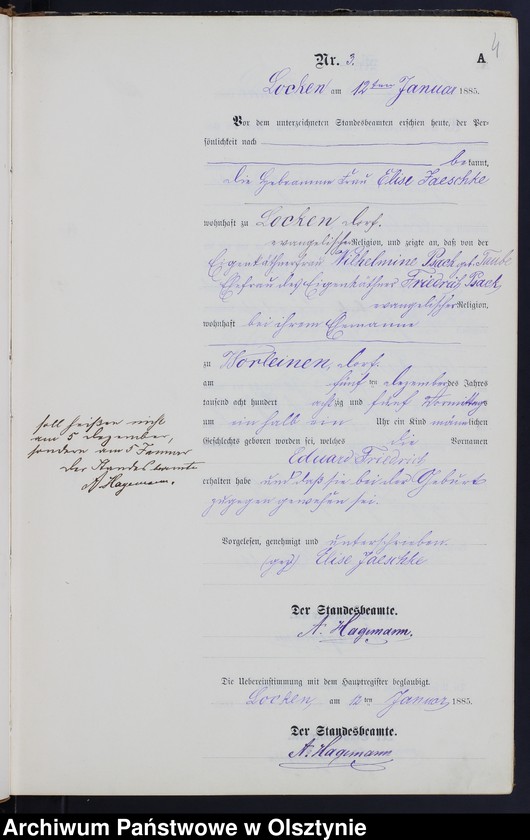 4
Nr. 3. A
Locken am 12ten Januar 1885.
Vor dem unterzeichneten Standesbeamten erschien heute, der Per-
sönlichkeit nach
bekannt,
die Hebeamme Frau Elise Jaeschke
wohnhaft zu Locken, Dorf,
evangelischer Religion, und zeigte an, daß von der
Eigenkäthnerfrau Wilhelmine Back, geb. Taube
Ehefrau des Eigenkäthners Friedrich Back,
evangelischer Religion,
wohnhaft bei ihrem Ehemanne
zu Worleinen, Dorf,
am fünften Dezember des Jahres
tausend acht hundert achtzig und fünf Vormittags
um ein halb ein Uhr ein Kind männlichen
Geschlechts geboren worden sei, welches die Vornamen
Eduard Friedrich
erhalten habe und daß sie bei der Geburt
zugegen gewesen sei.
soll heißen nicht
am 5 Dezember,
sondern am 5 Januar
Der Standesbeamte
A Hagemann.
Vorgelesen, genehmigt und unterschrieben
(gez) Elise Jaeschke
Der Standesbeamte.
A. Hagemann.
Die Uebereinstimmung mit dem Hauptregister beglaubigt.
Locken, am 12ten Januar 1885.
Der Standesbeamte.
A. Hagemann
Archiwum Państwowe w Olsztynie